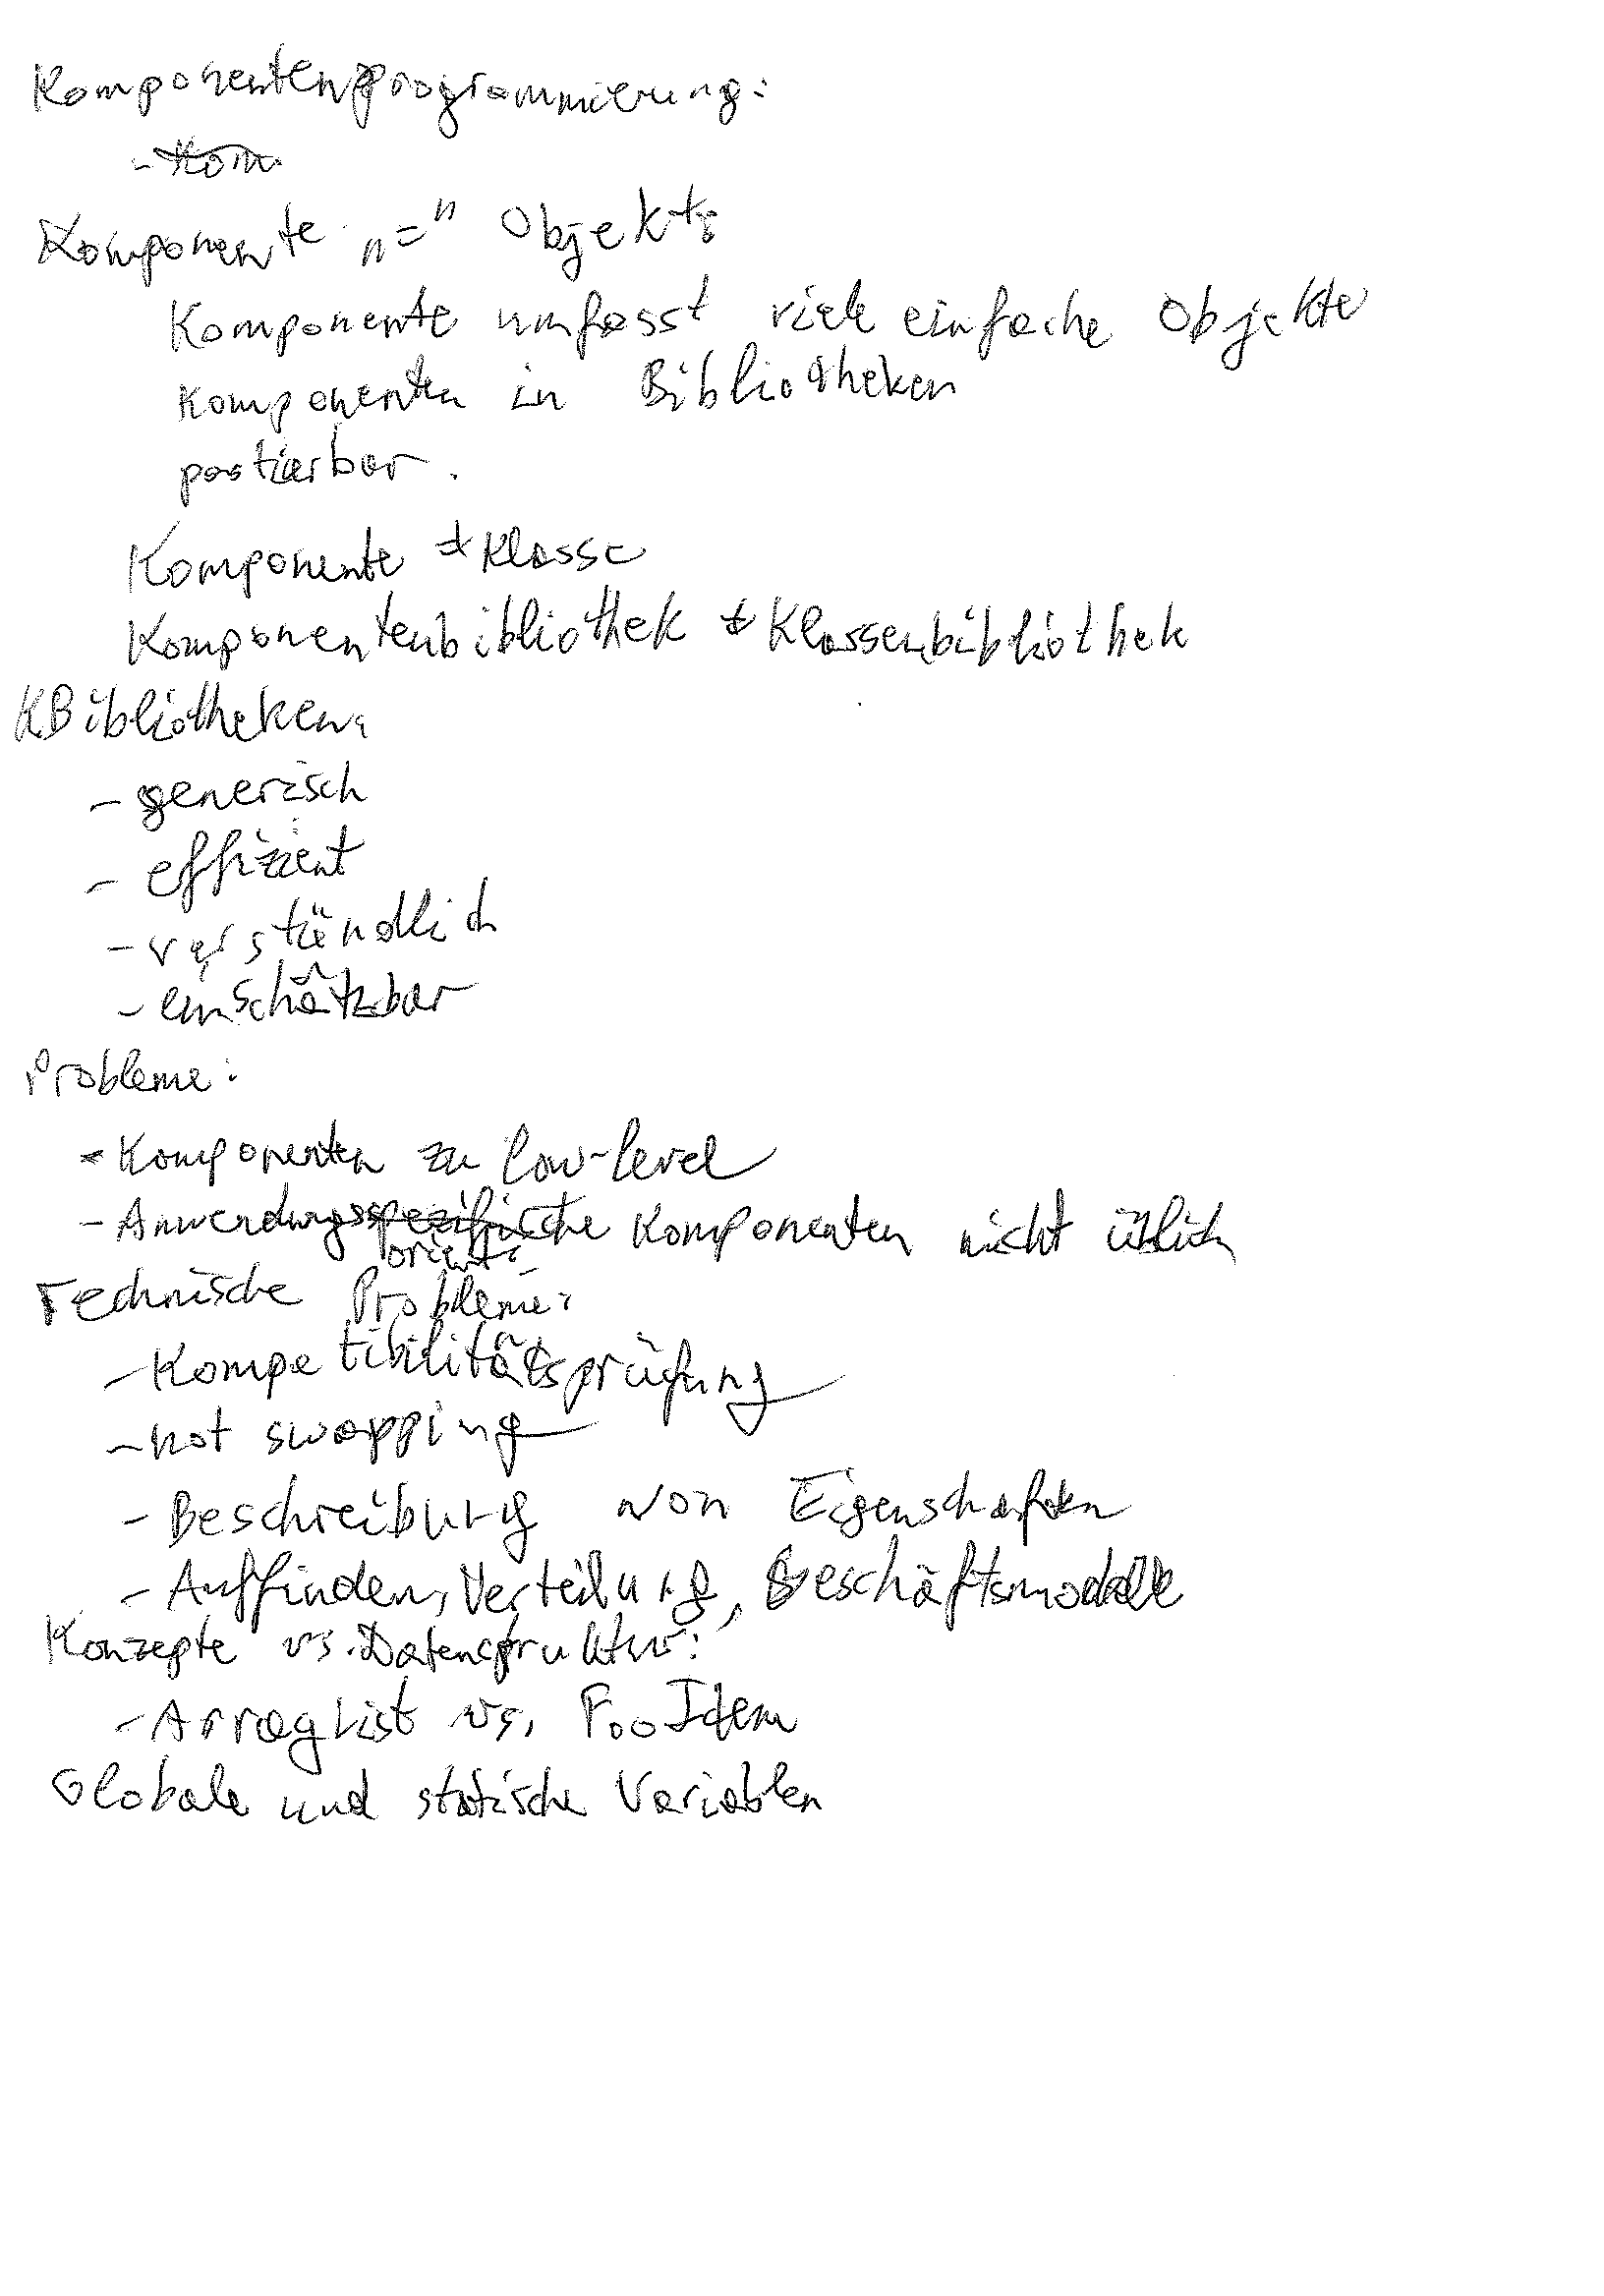 Komponentenprogrammierung:
- Kom
Komponente "=" Objekt:
Komponente umfasst viele einfache Objekte
Komponenten in Bibliotheken
portierbar.
Komponente ≠ Klasse
Komponentenbibliothek ≠ Klassenbibliothek
KBibliotheken:
- generisch
- effizient
- verständlich
- einschätzbar
Probleme:
- Komponenten zu low-level
- Anwendungsspezifische Komponenten nicht üblich
orient.
Technische Probleme:
- Kompatibilitätsprüfung
- hot swapping
- Beschreibung von Eigenschaften
- Auffinden, Verteilung, Geschäftsmodelle
Konzepte vs. Datenstruktur:
- ArrayList vs. FooItem
Globale und statische Variablen